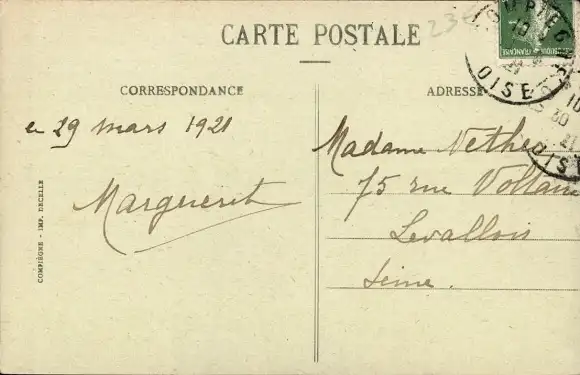 CARTE POSTALE
CORRESPONDANCE
ADRESSE
le 29 mars 1921
Margueret
Madame
75 rue Voltaire
Levallois
Seine.
COMPIÈGNE - IMP. DECELLE
OISE